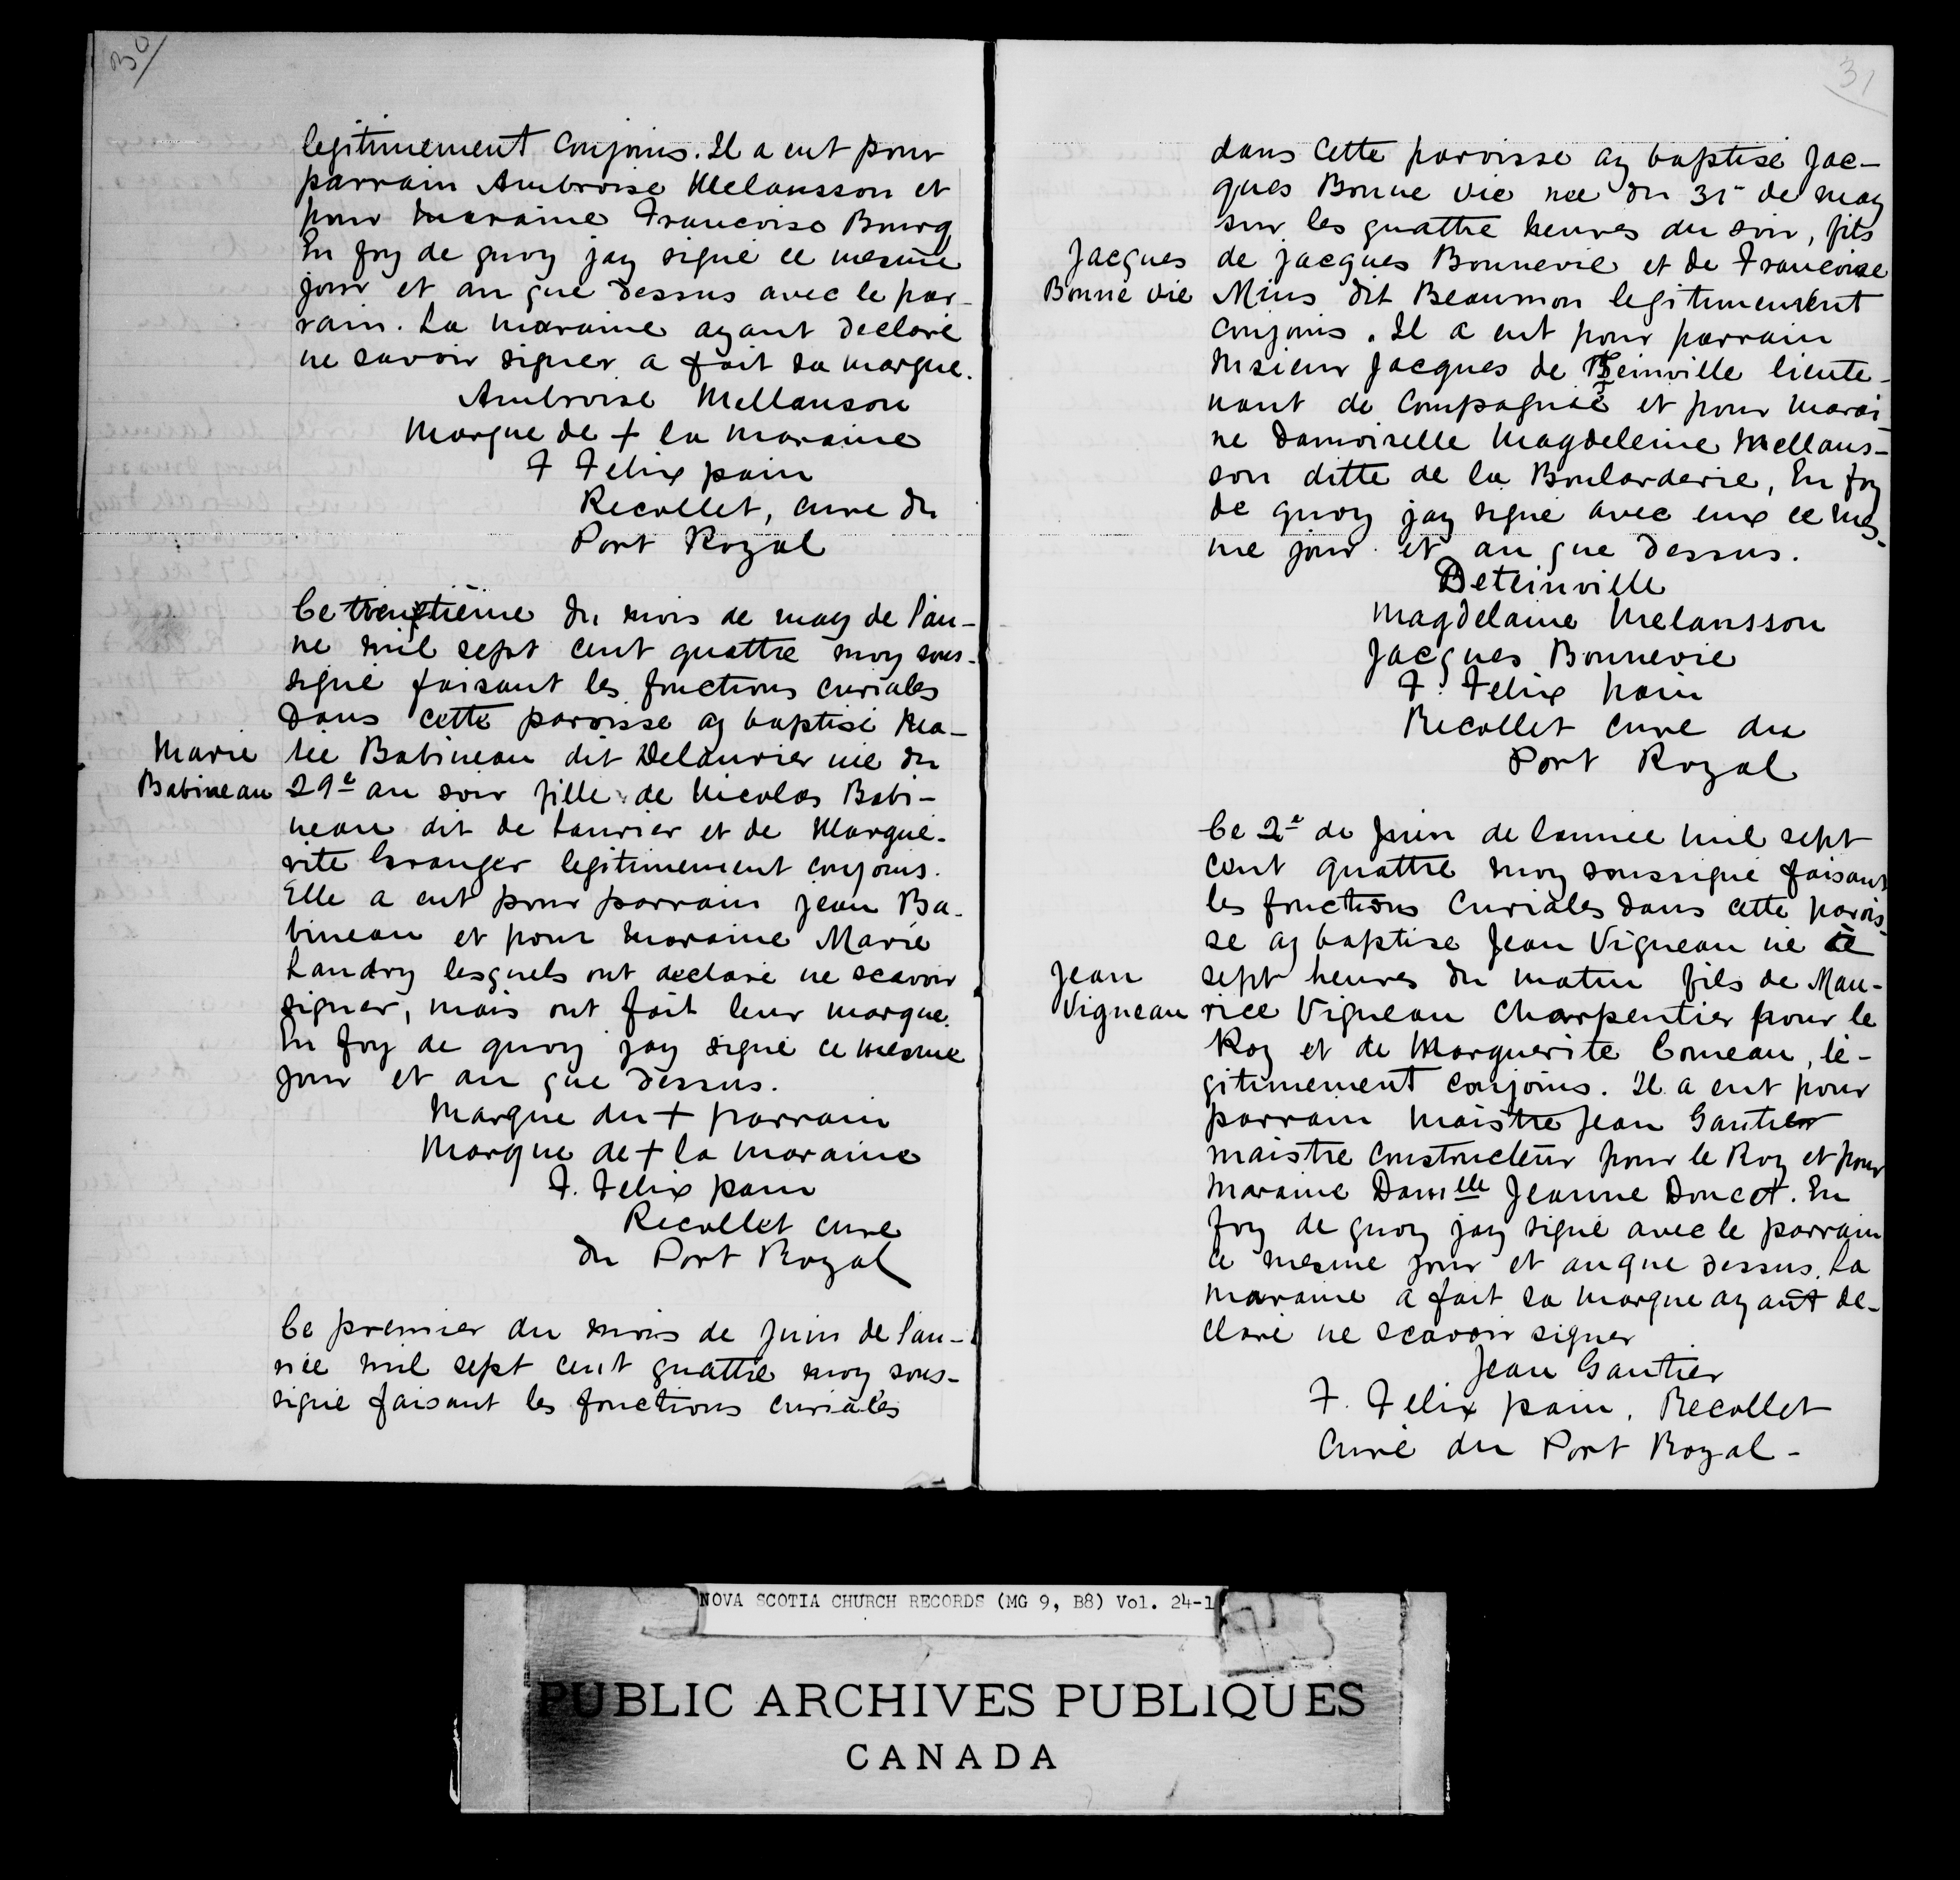 30
legitimement conjoins. Il a eut pour
parrain Ambroise Melansson et
pour maraine Francoise Bourg
En foy de quoy jay signé ce mesme
jour et an que dessus avec le par-
rain. La maraine ayant declaré
ne savoir signer a fait sa marque.
Ambroise Mellanson
Marque de + la maraine
F Felix pain
Recollet, curé du
Port Royal
Ce trentième du mois de may de l'an-
ne mil sept cent quattre moy sous-
signé faisant les fonctions curiales
dans cette paroisse ay baptisé Ma-
Marie
Babineau
rie Babineau dit Delaurier née du
29e au soir fille de Nicolas Babi-
neau dit de Laurier et de Margue-
rite Granger legitimement conjoins.
Elle a eut pour parrain jean Ba-
bineau et pour maraine Marie
Landry lesquels ont declaré ne scavoir
signer, mais ont fait leur marque.
En foy de quoy jay signé ce mesme
jour et an que dessus.
Marque du + parrain
Marque de + la maraine
F. Felix pain
Recollet curé
du Port Royal
Ce premier du mois de juin de l'an-
née mil sept cent quattre moy sous-
signé faisant les fonctions curiales
31
dans cette paroisse ay baptisé Jac-
ques Bonne vie née du 31e de may
sur les quattre heures du soir, fils
Jacques
Bonne vie
de jacques Bonnevie et de Francoise
Mius dit Beaumon legitimement
conjoins. Il a eut pour parrain
Msieur Jacques de Teinville lieute-
nant de compagnie et pour marai-
ne Damoiselle Magdeleine Mellans-
son ditte de la Boularderie, En foy
de quoy jay signé avec eux ce mes-
me jour et an que dessus.
Deteinville
Magdelaine Melansson
Jacques Bonnevie
F. Felix pain
Recollet curé du
Port Royal
Ce 2e de juin de lannée mil sept
cent quattre moy soussigné faisant
les fonctions curiales dans cette parois-
se ay baptisé Jean Vigneau né ce
Jean
Vigneau
sept heures du matin fils de Mau-
rice Vigneau charpentier pour le
Roy et de Marguerite Comeau, lé-
gitimement conjoins. Il a eut pour
parrain maistre Jean Gautier
maistre constructeur pour le Roy et pour
maraine Damelle Jeanne Doucet. En
foy de quoy jay signé avec le parrain
ce mesme jour et an que dessus. La
maraine a fait sa marque ayant de-
claré ne scavoir signer
Jean Gautier
F. Felix pain, Recollet
Curé du Port Royal-
NOVA SCOTIA CHURCH RECORDS (MG 9, B8) Vol. 24-1
PUBLIC ARCHIVES PUBLIQUES
CANADA